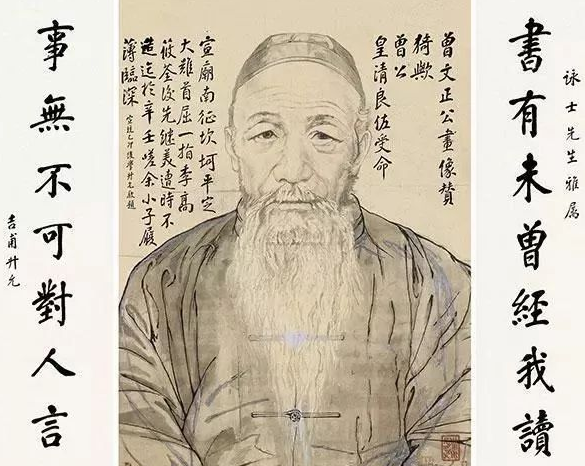 詠士先生雅屬
書有未曾經我讀
曾文正公畫像贊
猗歟
曾公
皇清良佐受命
宣廟南征坎坷平定
大難首屈一指季高
筱荃後先繼美遭時不
造迄於辛壬嗟余小子履
薄臨深
宣統乙卯後學升允敬題
事無不可對人言
吉甫升允